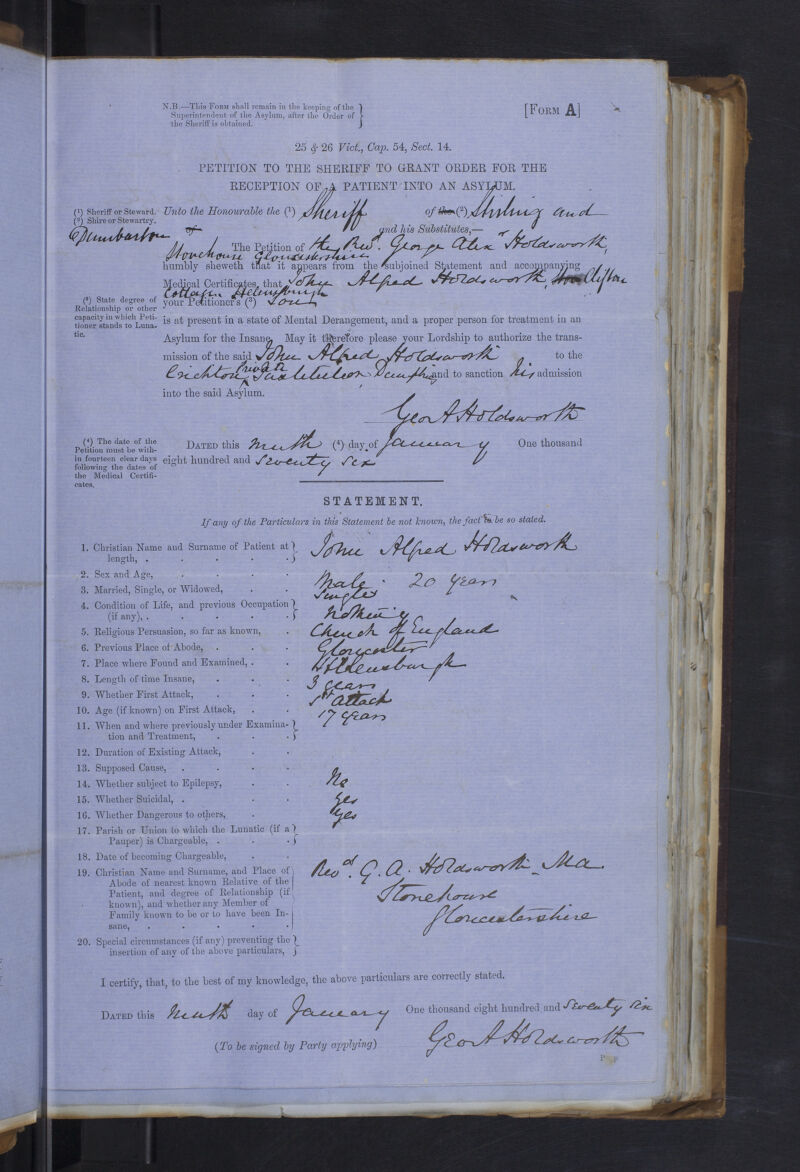 N.B.—This Form shall remain in the keeping of the
Superintendent of the Asylum, after the Order of
the Sheriff is obtained.
[Form A]
25 & 26 Vict., Cap. 54, Sect. 14.
PETITION TO THE SHERIFF TO GRANT ORDER FOR THE
RECEPTION OF A PATIENT INTO AN ASYLUM.
(1) Sheriff or Steward.
(2) Shire or Stewartry.
Unto the Honourable the (1) Sheriff of the (2) Stirling and
Dumbarton and his Substitutes,—
The Petition of the Revd. George Alexr Holdsworth,
Stonehouse Gloucestershire
humbly sheweth that it appears from the subjoined Statement and accompanying
Medical Certificates, that John Alfred Holdsworth, Clifton
Cottage Helensburgh
(3) State degree of
Relationship or other
capacity in which Peti-
tioner stands to Luna-
tic.
your Petitioner's (3) Son
is at present in a state of Mental Derangement, and a proper person for treatment in an
Asylum for the Insane. May it therefore please your Lordship to authorize the trans-
mission of the said John Alfred Holdsworth to the
Crichton Institution Dumfries and to sanction his admission
into the said Asylum.
Geo A Holdsworth
(4) The date of the
Petition must be with-
in fourteen clear days
following the dates of
the Medical Certifi-
cates.
Dated this Ninth (4) day of January One thousand
eight hundred and Seventy Six
STATEMENT.
If any of the Particulars in this Statement be not known, the fact to be so stated.
1. Christian Name and Surname of Patient at
length, . John Alfred Holdsworth
2. Sex and Age, Male . 20 years
3. Married, Single, or Widowed, Single
4. Condition of Life, and previous Occupation
(if any), . Nothing
5. Religious Persuasion, so far as known, Church of England
6. Previous Place of Abode, Gloucester
7. Place where Found and Examined, . Helensburgh
8. Length of time Insane, 3 years
9. Whether First Attack, 1st attack
10. Age (if known) on First Attack, 17 years
11. When and where previously under Examina-
tion and Treatment,
12. Duration of Existing Attack,
13. Supposed Cause,
14. Whether subject to Epilepsy, No
15. Whether Suicidal, . Yes
16. Whether Dangerous to others, Yes
17. Parish or Union to which the Lunatic (if a
Pauper) is Chargeable,
18. Date of becoming Chargeable,
19. Christian Name and Surname, and Place of
Abode of nearest known Relative of the
Patient, and degree of Relationship (if
known), and whether any Member of
Family known to be or to have been In-
sane,
Revd. G. A. Holdsworth Ma
Stonehouse
Gloucestershire
20. Special circumstances (if any) preventing the
insertion of any of the above particulars,
I certify, that, to the best of my knowledge, the above particulars are correctly stated.
Dated this Ninth day of January One thousand eight hundred and Seventy Six
(To be signed by Party applying) Geo A Holdsworth